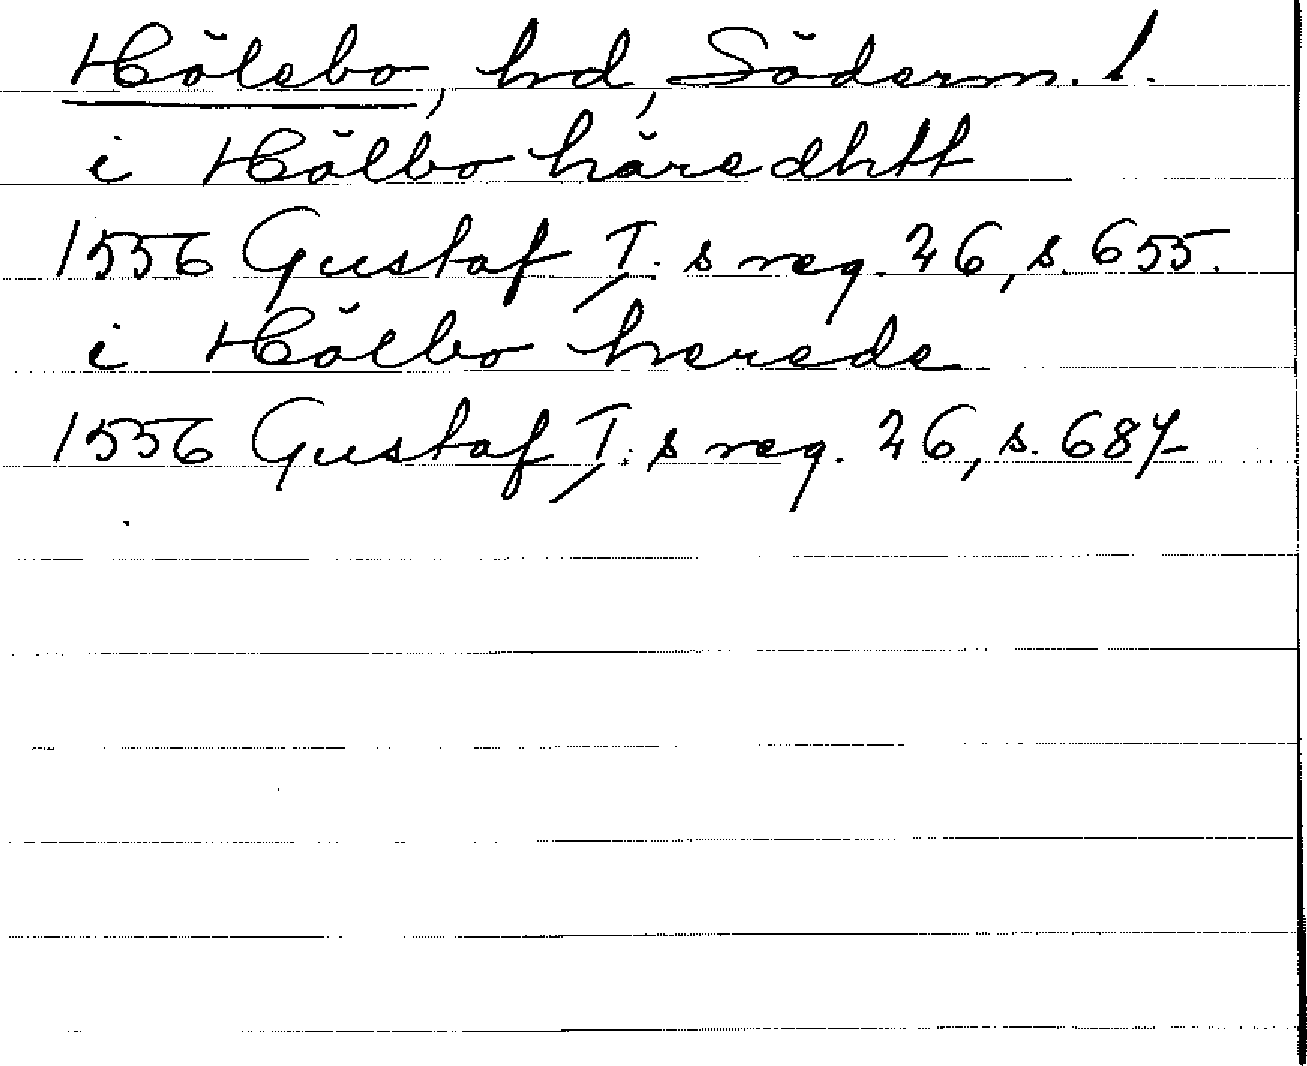 Hölebo, hd, Söderm. l.
i Hölbo häredhtt
1556 Gustaf I.s reg. 26, s. 655.
i Hölbo herede
1556 Gustaf I.s reg. 26, s. 687